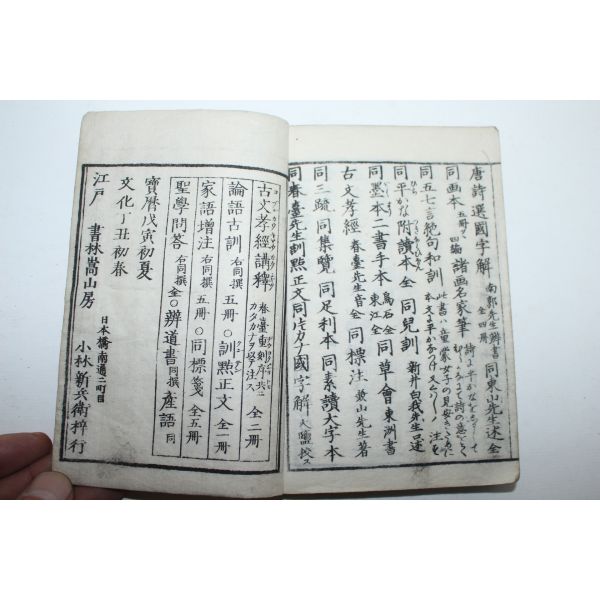 唐詩選國字解 南郭先生辨書 全四冊 同東山先生述 全
同画本 五冊ヅヽ 四編 諸画名家筆
同五七言絶句和訓
同平かな附讀本 全 同兒訓 新井白蛾先生口述
同墨本二書手本 烏石全 東江全 同草會 東洲書
古文孝經 春臺先生音全 同標注 同足利本 同素讀大字本
同三疏 同集覽
同春臺先生訓點正文 同片カナ國字解
古文孝經講釋 全二冊
論語古訓 右同撰 五冊〇訓點正文 全一冊
家語增注 右同撰 五冊〇同標箋 全五冊
聖學問答 右同撰 全〇辨道書 同撰 産語 同
寶暦戊寅初夏
文化丁丑初春
江戸 書林嵩山房 日本橋南通二町目 小林新兵衛梓行